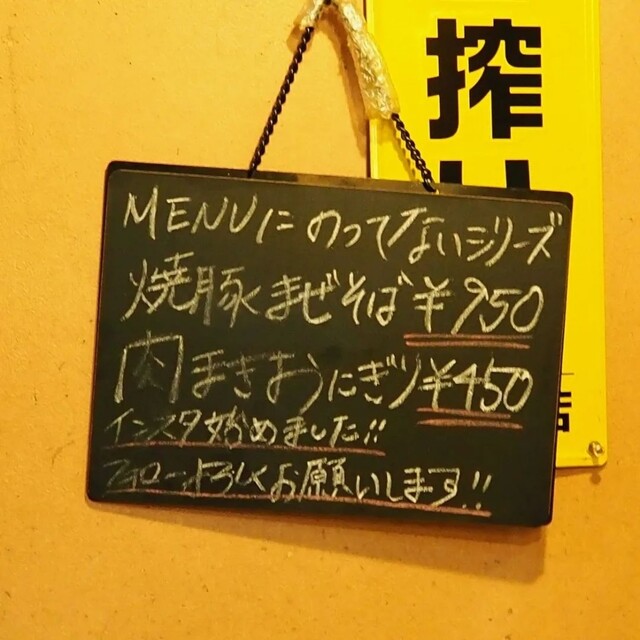 搾り
MENUにのってないシリーズ
焼豚まぜそば¥950
肉まきおうにぎり¥450
インスタ始めました!!
フォローよろしくお願いします!!